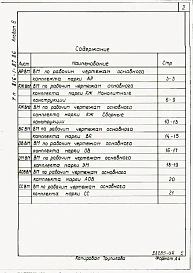 2
Содержание
Лист Наименование Стр
ВМ по рабочим чертежам основного
комплекта марки АР 3-5
ВМ по рабочим чертежам основного
комплекта марки КЖ Монолитные
конструкции 6-9
ВМ по рабочим чертежам основного
комплекта марки КЖ Сборные
конструкции 10-13
ВМ по рабочим чертежам основного
комплекта марки ВК 14-15
ВМ по рабочим чертежам основного
комплекта марки ОВ 16-17
ВМ по рабочим чертежам основного
комплекта марки ЭМ 18-19
ВМ по рабочим чертежам основного
комплекта марки АОВ 20
ВМ по рабочим чертежам основного
комплекта марки СС 21
Копировал
Формат А4